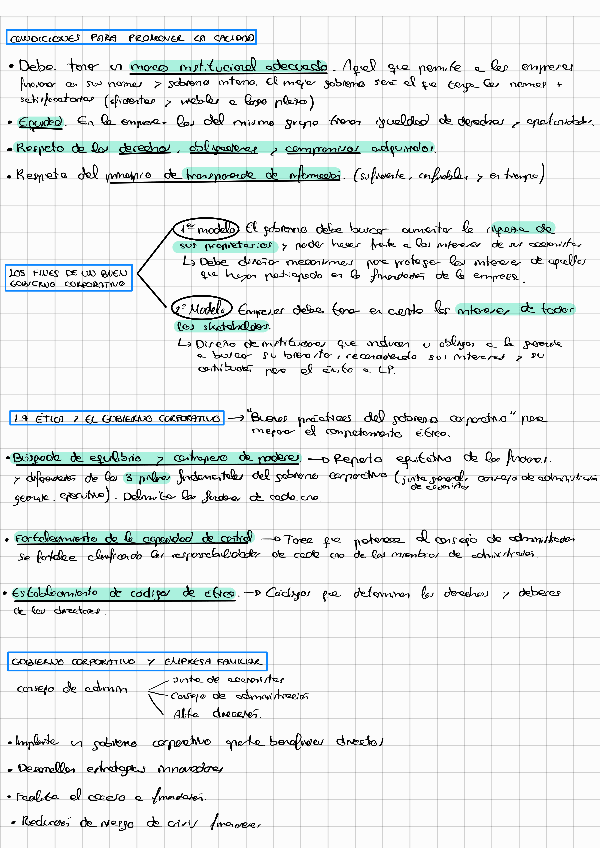 CONDICIONES PARA PROMOVER LA CALIDAD
• Debe tener un marco institucional adecuado. Aquel que permite a las empresas
funcionar en sus normas y gobierno interno. El mejor gobierno será el que tenga las normas +
satisfactorias (eficientes y viables a largo plazo)
• Equidad. En la empresa los del mismo grupo tienen igualdad de derechos y oportunidades.
• Respeto de los derechos, obligaciones y compromisos adquiridos.
• Respeto del principio de transparencia de información. (suficiente, confiable y en tiempo)
1er modelo El gobierno debe buscar aumentar la riqueza de
sus propietarios y poder hacer frente a los intereses de sus accionistas
↳ Debe diseñar mecanismos para proteger los intereses de aquellos
que hayan participado en la financiación de la empresa.
LOS FINES DE UN BUEN
GOBIERNO CORPORATIVO
2º Modelo Empresas debe tener en cuenta los intereses de todos
los stakeholders.
↳ Diseño de instituciones que induzcan u obliguen a la gerencia
a buscar su bienestar, reconociendo sus intereses y su
contribución para el éxito a LP.
ÉTICA Y EL GOBIERNO CORPORATIVO → "Buenas prácticas del gobierno corporativo" para
mejorar el comportamiento ético.
• Búsqueda de equilibrio y contrapeso de poderes → Reparto equitativo de las funciones
y diferenciación de los 3 pilares fundamentales del gobierno corporativo (junta general de accionistas, consejo de administración
gerencia ejecutiva). Delimitar las funciones de cada uno
• Fortalecimiento de la capacidad de control → Tiene que potenciar al consejo de administración
se fortalece clarificando las responsabilidades de cada uno de los miembros de administración.
• Establecimiento de códigos de ética. → Códigos que determinan los derechos y deberes
de los directores.
GOBIERNO CORPORATIVO Y EMPRESA FAMILIAR
Junta de accionistas
consejo de admin
Consejo de administración
Alta dirección.
• Implantar un gobierno corporativo aporta beneficios directos
• Desarrollar estrategias innovadoras
• Facilita el acceso a financiación.
• Reducción de riesgo de crisis financieras